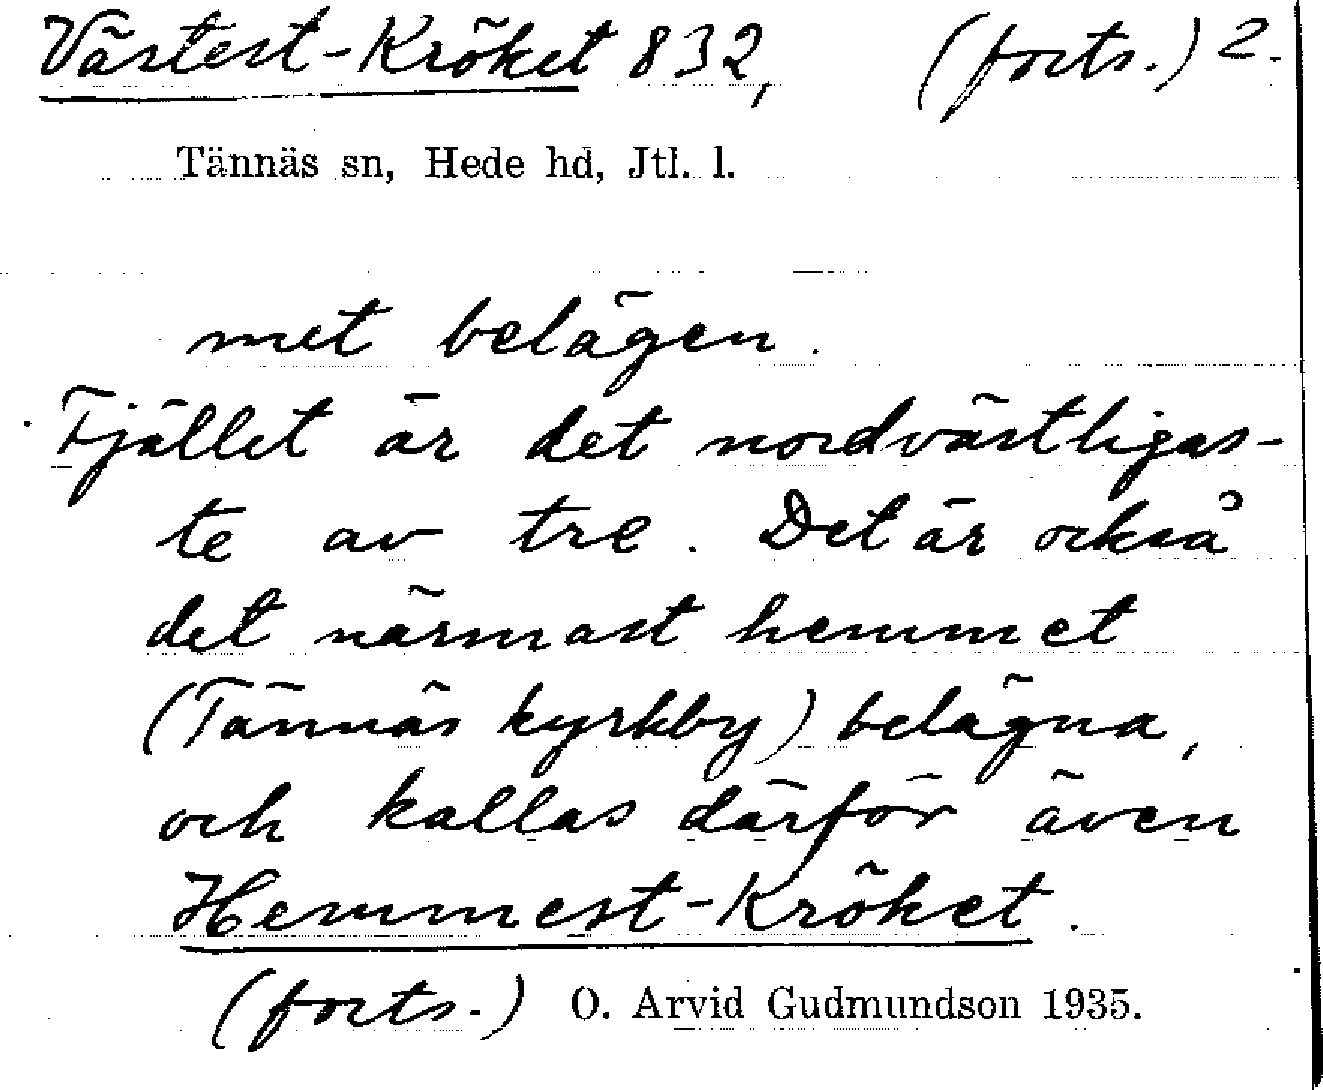 Västest-Kröket 832, (forts.) 2.
Tännäs sn, Hede hd, Jtl. l.
met belägen.
Fjället är det nordvästligas-
te av tre. Det är också
det närmast hemmet
(Tännäs kyrkby) belägna,
och kallas därför även
Hemmest-Kröket.
(forts.) O. Arvid Gudmundson 1935.